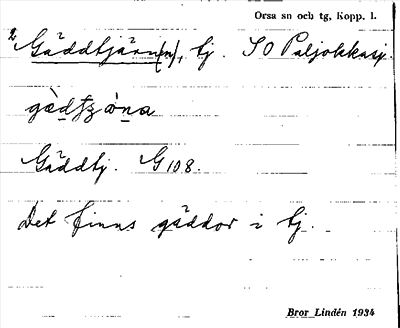 Orsa sn och tg, Kopp. l.
2 Gäddtjärn(n), tj. SO Paljakkasj.
Gäddtj. G 108.
Det finns gäddor i tj.
Bror Lindén 1934